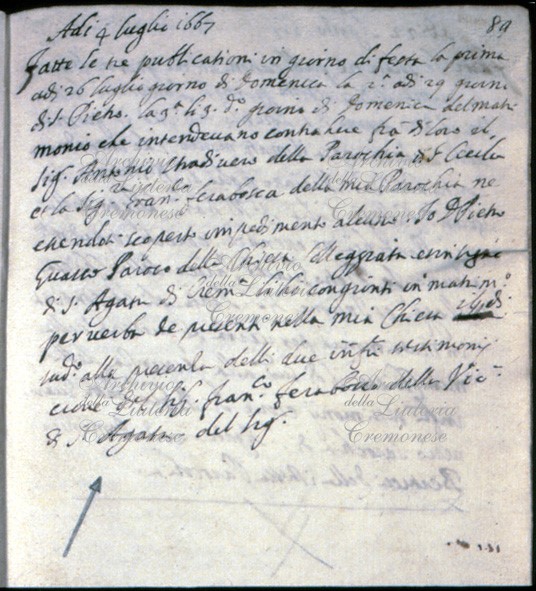 Adi 4 luglio 1667
89
fatte le tre publicationi in giorno di festa la prima
adi 26 luglio giorno di Domenica la 2.a adi 29 giorno
di S. Pietro. la 3.a li 3. d.o giorno di Domenica del matri
monio che intendeuano contrahere frà di loro il
Sig. Antonio Stradiuero della Parochia di S Cecilia
et la Sig. Fran.ca ferabosca della mia Parochia ne
essendosi scoperto impedimento alcuno. Io D Pietro
Guallo Paroco della Chiesa Collegiata et insigne
di S. Agata di Crem. li hò congionti in matrim.o
per uerba de presenti nella mia Chiesa
sud.a alla presenza delli due infr. testimonij
cioè del Sig. Fran.co ferabosco della Vic.a
di S. Agata. del Sig.
Archivio
della Liuteria
Cremonese